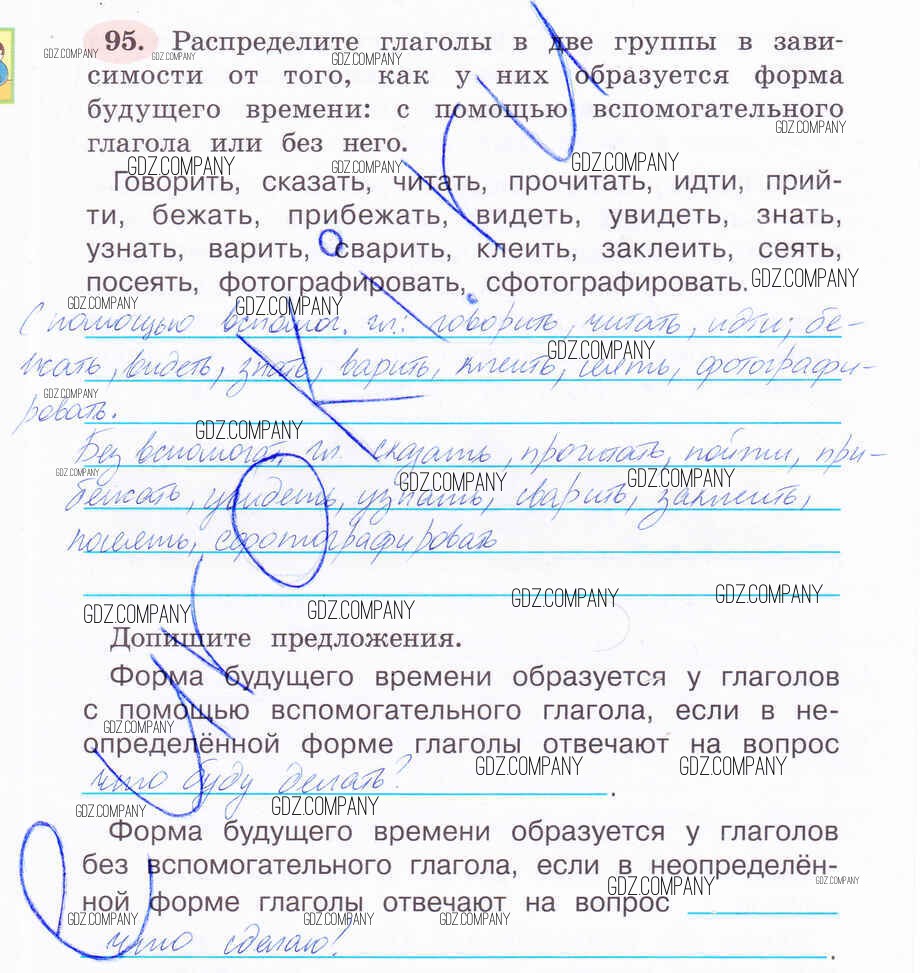 95. Распределите глаголы в две группы в зави-
симости от того, как у них образуется форма
будущего времени: с помощью вспомогательного
глагола или без него.
Говорить, сказать, читать, прочитать, идти, прий-
ти, бежать, прибежать, видеть, увидеть, знать,
узнать, варить, сварить, клеить, заклеить, сеять,
посеять, фотографировать, сфотографировать.
С помощью вспомог. гл.: говорить, читать, идти; бе-
жать, видеть, знать, варить, клеить, сеять, фотографи-
ровать.
Без вспомогат. гл. сказать, прочитать, пойти, при-
бежать, увидеть, узнать, сварить, заклеить,
посеять, сфотографировать
Допишите предложения.
Форма будущего времени образуется у глаголов
с помощью вспомогательного глагола, если в не-
определённой форме глаголы отвечают на вопрос
что буду делать?
Форма будущего времени образуется у глаголов
без вспомогательного глагола, если в неопределён-
ной форме глаголы отвечают на вопрос
что сделаю?
GDZ.COMPANY
eurokI.ru